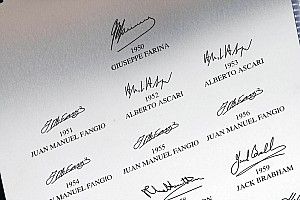 1950
GIUSEPPE FARINA
1952
ALBERTO ASCARI
1953
ALBERTO ASCARI
1951
JUAN MANUEL FANGIO
1955
JUAN MANUEL FANGIO
1956
JUAN MANUEL FANGIO
1954
JUAN MANUEL FANGIO
1959
JACK BRABHAM